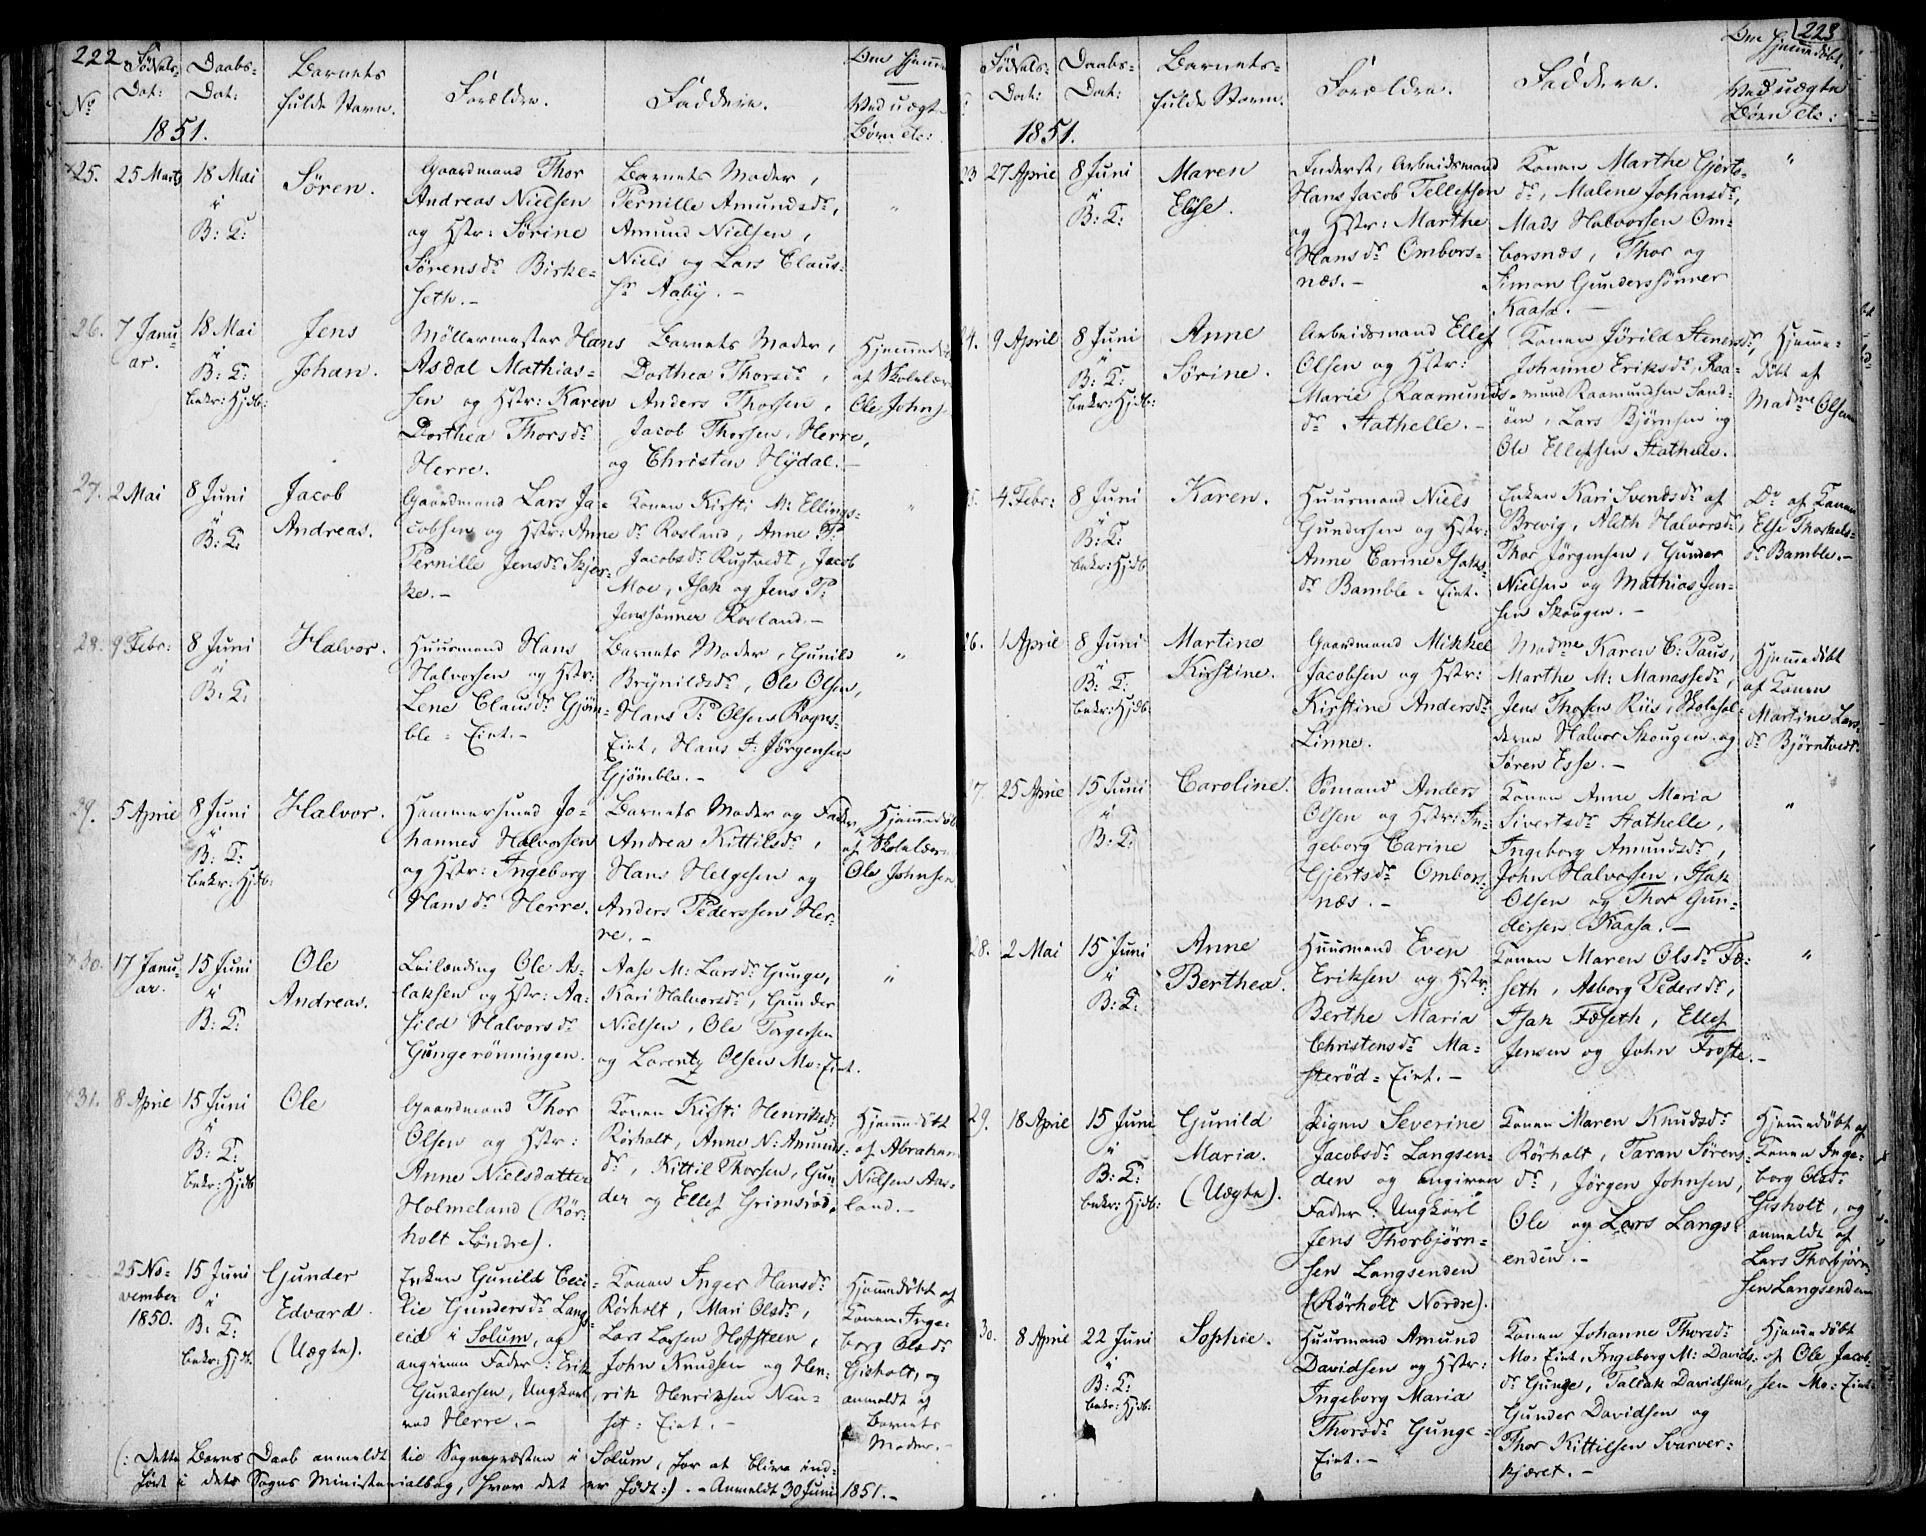 222
Nº
Fødsels-
Dat:
1851.
Daabs-
Dat:
Barnets
fulde Navn.
Forældre.
Faddere.
Om Hjemme
Ved uægte
Børn etc:
25.
25 Marts
18 Mai
i
B: K:
Søren.
Gaardmand Thor
Andreas Nielsen
og Hstr: Sørine
Sørensdr. Birke=
seth.-
Barnets Moder,
Pernille Amundsdr,
Amund Nielsen,
Niels og Lars Claus-
sr Aaby.-
"
26.
7 Janu-
ar.
18 Mai
i
B: K:
bekr: Hjdb:
Jens
Johan.
Møllermester Hans
Asdal Mathias=
sen og Hstr: Karen
Dorthea Thorsdr
Herre.
Barnets Moder,
Dorthea Thorsdr,
Anders Thorsen,
Jacob Thorsen, Herre,
og Christen Hydal.-
Hjemmedøbt
af Skolelær
Ole Johns
27.
2 Mai
8 Juni
i
B: K:
Jacob
Andreas.
Gaardmand Lars Ja-
cobsen og Hstr: Anne
Pernille Jensdr Skjer-
ke.-
Konen Kirsti M: Ellings-
dr Rosland, Anne P:
Jacobsdr Rugtvedt, Jacob
Moe, Isak og Jens P:
Jenssønner Rosland.-
"
28.
9 Febr:
8 Juni
i
B: K:
Halvor.
Huusmand Hans
Halvorsen og Hstr:
Lene Clausdr Gjøm-
ble = Eiet.-
Barnets Moder, Gunild
Brynildsdr, Ole Olsen,
Hans P: Olsen Rogns-
Eiet, Hans P: Jørgensen
Gjømble.-
"
29.
5 April
8 Juni
i
B: K:
bekr: Hjdb:
Halvor.
Hammersmed Jo-
hannes Halvorsen
og Hstr: Ingeborg
Hansdr Herre.
Barnets Moder og Fader,
Andrea Kittilsdr,
Hans Helgesen og
Anders Pederssen Her-
re.-
Hjemmedøb
af Skolelærer
Ole Johnsen
30.
17 Janu-
ar.
15 Juni
i
B: K:
Ole
Andreas.
Leilænding Ole As-
laksen og Hstr: Aa-
sild Halvorsdr
Gungerønningen.
Aase M: Larsdr Gunge,
Kari Halvorsdr, Gunder
Nielsen, Ole Torgersen
og Lorentz Olsen Mo=Eiet.
"
31.
8 April
15 Juni
i
B: K:
bekr: Hjdb
Ole
Gaardmand Thor
Olsen og Hstr:
Anne Nielsdatter
Holmeland (Rør-
holt Søndre).
Konen Kirsti Henriksdr
Rørholt, Anne N: Amunds-
dr, Kittil Thorsen, Gun-
der og Ellef Grimsrød.
Hjemmedøbt
af Abraham
Nielsen Aar-
land.-
25 No-
vember
1850.
15 Juni
i
B: K:
bekr: Hjdb.
Gunder
Edvard.
(Uægte).
Enken Gunild Ceci-
lie Gundersdr Lang-
eid i Solum, og
angiven Fader: Erik
Gundersen, Ungkarl
ved Herre.-
Konen Inger Hansdr
Rørholt, Mari Olsdr,
Lars Larsen Hofsteen,
John Knudsen og Hen-
rik Henriksen Nen-
set = Eiet.-
Hjemmedøbt af
Konen Inge-
borg Olsdr
Gisholt, og
anmeldt af
Barnets
Moder.-
(: Dette Barns Daab anmeldt til Sognepræsten i Solum, for at blive ind-
ført i dets Sogns Ministerialbog, hvor det er født:).- Anmeldt 30 Juni 1851.-
223
Fødsels-
Dat:
1851.
Daabs-
Dat:
Barnets
fulde Navn.
Forældre.
Faddere.
Om Hjemmedøbt.
Ved uægte
Børn etc:
23
27 April
8 Juni
i
B: K:
Maren
Elise.
Inderst, Arbeidsmand
Hans Jacob Tellefsen
og Hstr: Marthe
Hansdr Ombors-
næs.-
Konen Marthe Gjerts-
dr, Malene Johansdr,
Mads Halvorsen Om-
borsnæs, Thor og
Simon Gunderssønner
Kaasa.-
"
24.
9 April
8 Juni
i
B: K:
bekr: Hjdb:
Anne
Sørine.
Arbeidsmand Ellef
Olsen og Hstr:
Marie Raamunds-
dr Stathelle.-
Konen Jørild Stenersdr,
Johanne Eriksdr, Raa-
mund Raamundsen Sand-
øen, Lars Bjørnsen og
Ole Ellefsen Stathelle.
Hjemme-
døbt af
Madme Olsen
25.
4 Febr:
8 Juni
i
B: K:
bekr: Hjdb
Karen.
Huusmand Niels
Gundersen og Hstr:
Anne Carine Isaks-
dr Bamble = Eiet.
Enken Kari Svendsdr af
Brevig, Aleth Halvorsdr,
Thor Jørgensen, Gunder
Nielsen og Mathias Jen-
sen Skougen.-
Do af Konen
Else Thorkels-
dr Bamble.-
26.
1 April
8 Juni
i
B: K:
bekr: Hjdb.
Martine
Kirstine.
Gaardmand Mikkel
Jacobsen og Hstr:
Kirstine Andersdr
Linne.
Madme Karen C: Paus,
Marthe M: Manassedr,
Jens Thorsen Riis, Skolehol-
derne Halvor Skougen og
Søren Esse.-
Hjemmedøbt
af Konen
Martine Lars-
dr Bjørntvedt.
27.
25 April
15 Juni
i
B: K:
Caroline.
Sømand Anders
Olsen og Hstr: In-
geborg Carine
Gjertsdr Ombors-
næs.-
Konen Anne Maria
Sivertsdr Stathelle,
Ingeborg Amundsdr,
John Halvorsen, Isak
Olsen og Thor Gun-
dersen Kaasa.-
"
28.
2 Mai
15 Juni
i
B: K:
Anne
Berthea.
Huusmand Even
Eriksen og Hstr:
Berthe Maria
Christensdr Ma-
sterød = Eiet.-
Konen Maren Olsdr Fæ-
seth, Asborg Pedersdr,
Isak Fæseth, Ellef
Jensen og John Froste.-
"
29.
18 April
15 Juni
i
B: K:
bekr: Hjdb:
Gunild
Maria.
(Uægte).
Pigen Severine
Jacobsdr Langsen-
den og angiven
Fader: Ungkarl
Jens Thorbjørn-
sen Langsenden
(Rørholt Nordre).
Konen Maren Knudsdr
Rørholt, Taran Sørens-
dr, Jørgen Johnsen,
Ole og Lars Langs-
enden.-
Hjemmedøbt af
Konen Inge-
borg Olsdr
Gisholt, og
anmeldt af
Lars Thorbjørn-
sen Langsenden
30.
8 April
22 Juni
i
B: K:
bekr: Hjdb.
Sophie.
Huusmand Amund
Davidsen og Hstr:
Ingeborg Maria
Thorsdr Gunge-
Eiet.-
Konen Johanne Thorsdr
Mo=Eiet, Ingeborg M: Davids-
dr Gunge, Tallak Davidsen,
Gunder Davidsen og
Thor Kittilsen Svarver-
kjæret.-
Hjemmedøbt
af Ole Jacob-
sen Mo=Eiet